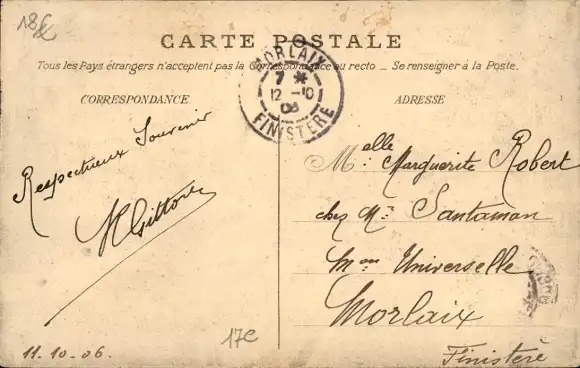 18€
CARTE POSTALE
Tous les Pays étrangers n'acceptent pas la Correspondance au recto _ Se renseigner à la Poste.
MORLAIX
7 *
12 -10
06
FINISTERE
CORRESPONDANCE
ADRESSE
Respectueux Souvenir
Melle Marguerite Robert
chez Mr Santaman
Mon Universelle
Morlaix
Finistère
17€
11.10.06.